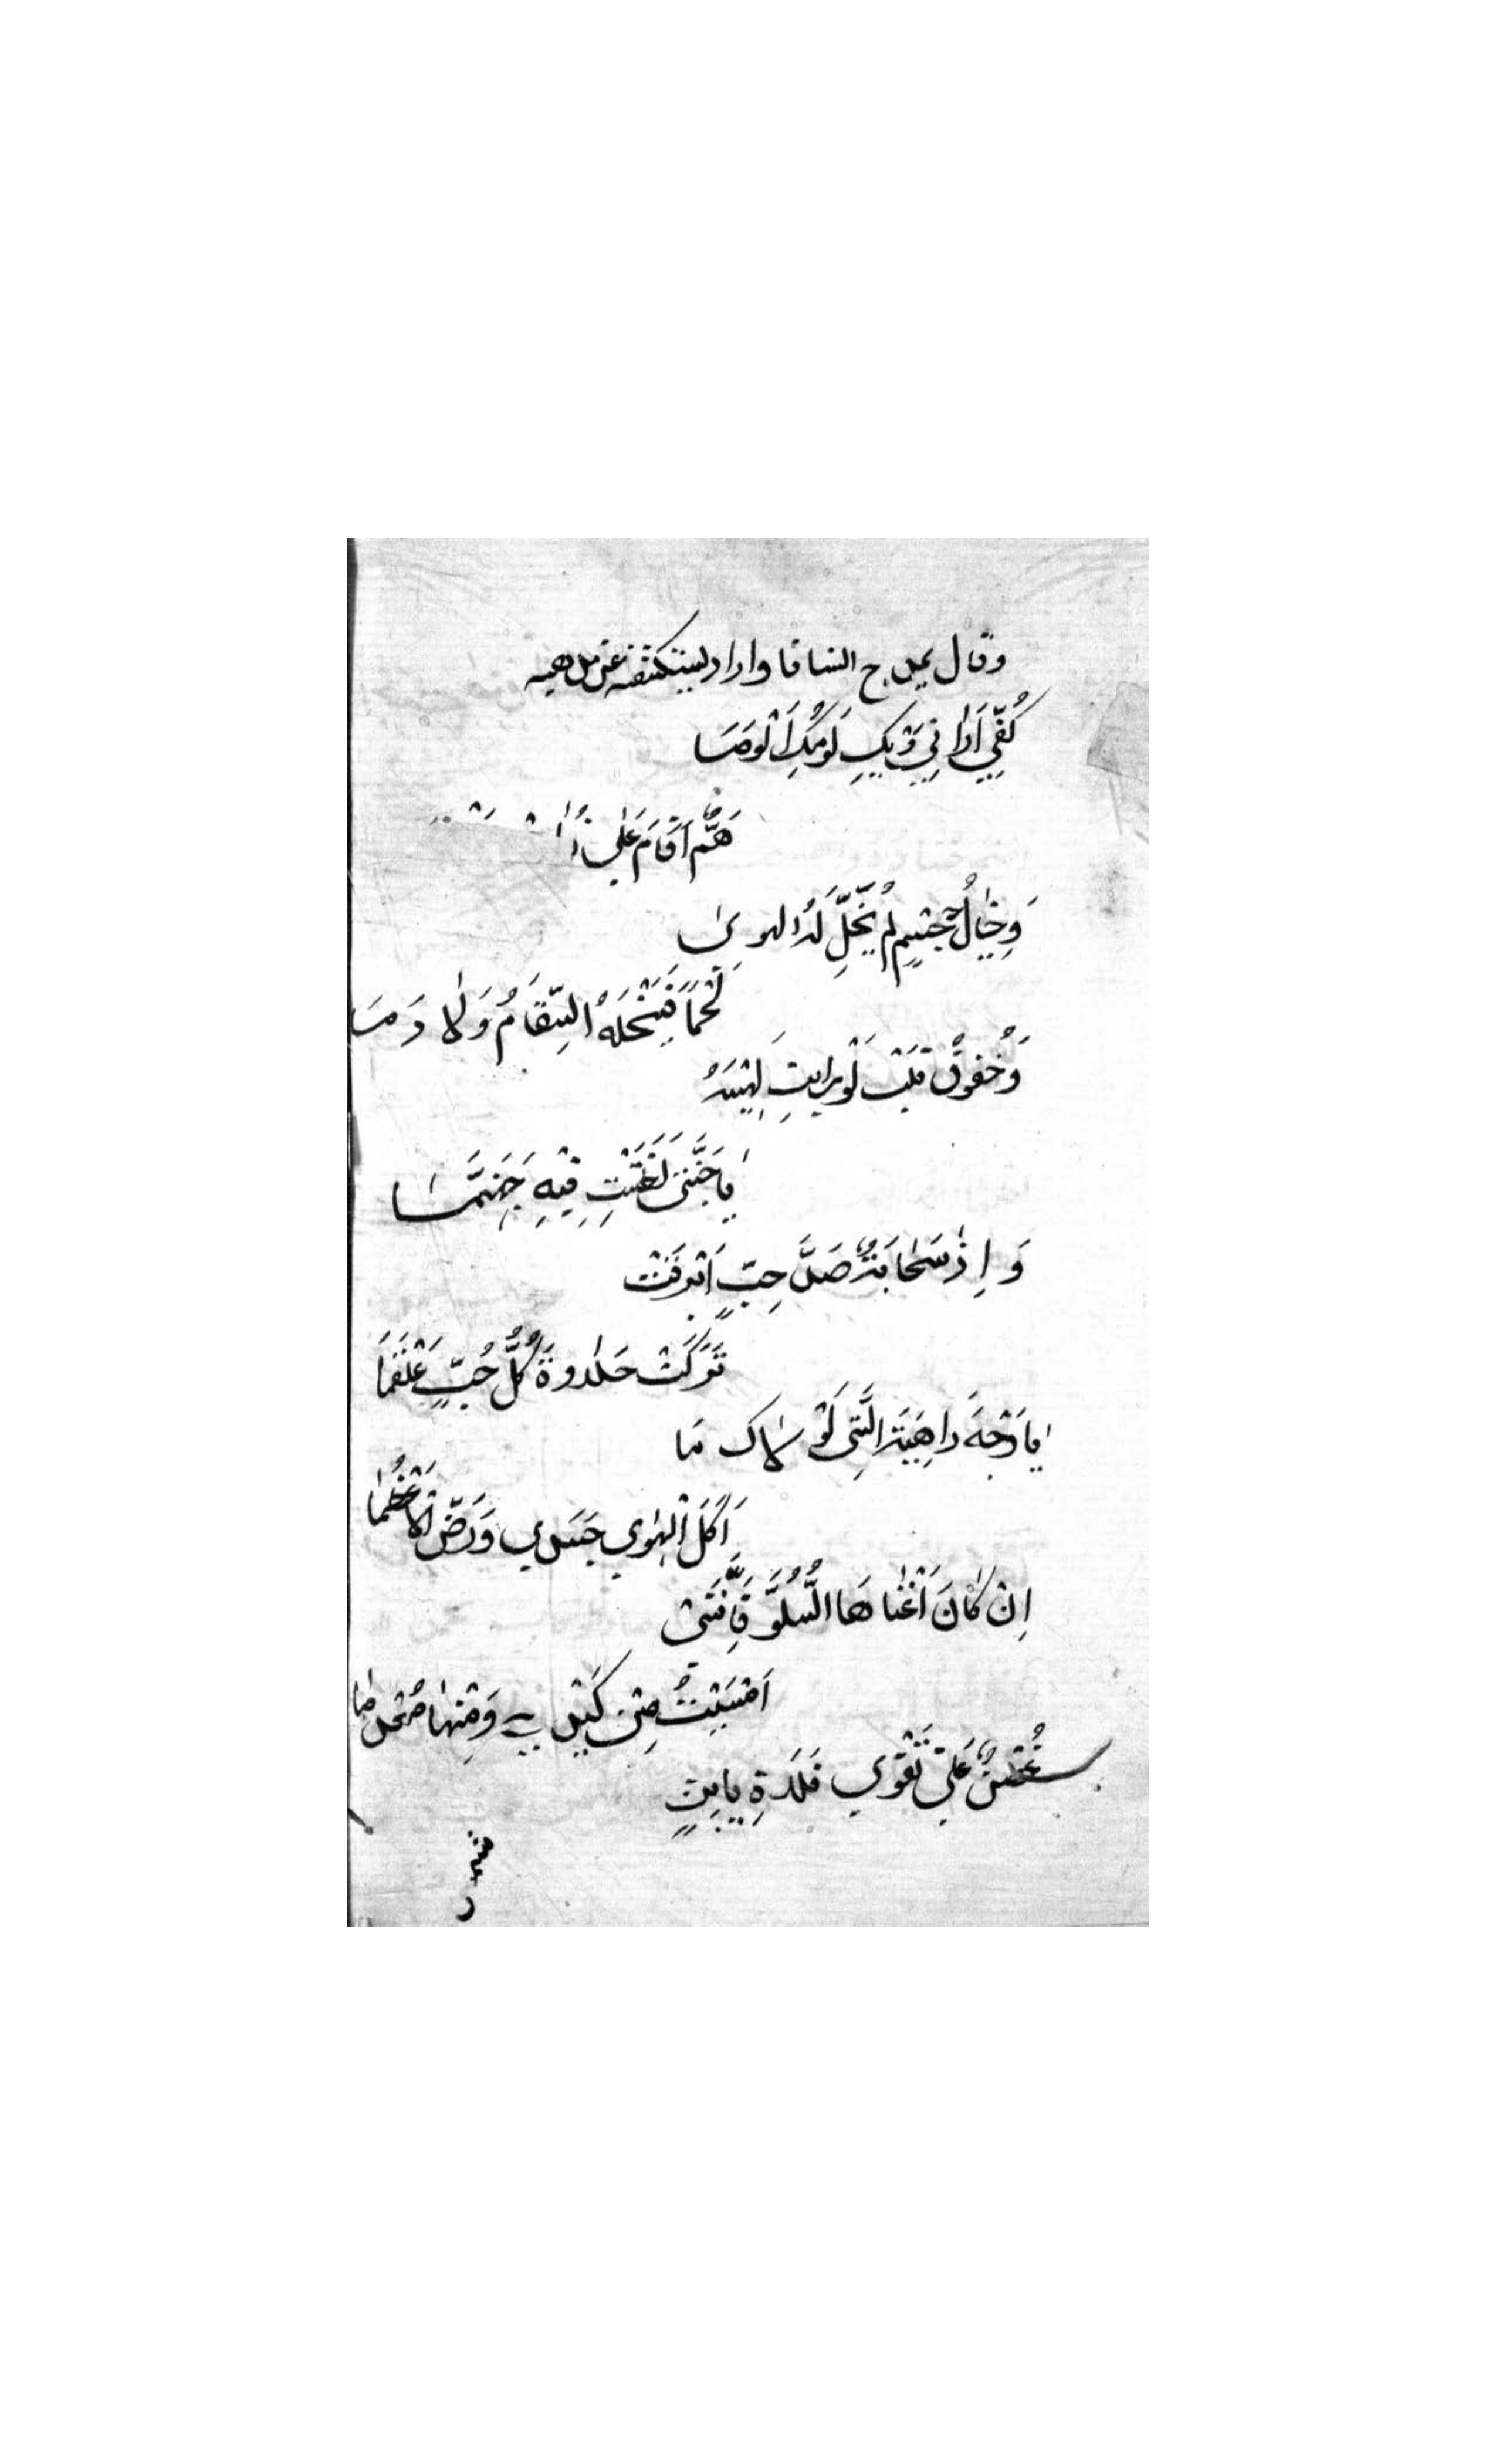 وقال يمدح انسانا واراد ليستكشفه عن مذهبه
كُفِّي اَرَانِي وَيْكِ لَوْمَكِ اَلْوَمَا
هَمٌّ اَقَامَ عَلَى
وَخَيَالُ جِسْمٍ لَمْ يُخَلِّ لَهُ الهوى
لَحْمًا فَيُنْحِلَهُ السِّقَامُ وَلَا دَمَا
وَخُفُوقُ قَلْبٍ لَوْ رَايتِ لَهِيْبَهُ
يَا جَنَّتِى لَظَنَنْتِ فِيْهِ جَهَنَّمَا
وَاِذَ سَحَابَةُ صَدِّ حِبٍّ اَبْرَقَتْ
تَرَكَتْ حَلَاوةَ كُلِّ حُبٍّ عَلْقَمَا
يَا وَجْهَ دَاهِيَةَ الَّتِى لَوْلَاكِ مَا
اَكَلَ الْهَوَى جَسَدِي وَرَضَّ الْاَعْظُمَا
اِنْ كَانَ اَغْنَاهَا السُّلُوُّ فَاِنَّنِىْ
اَمْسَيْتُ مِنْ كَبِدِي وَمِنْهَا مُعْدِمَا
غُصْنٌ عَلَى نَقَوَي فَلَاةٍ نابِتٌ
شمس